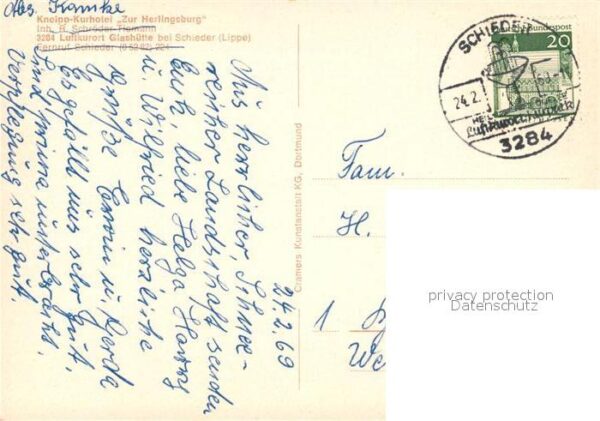 Abs. Franke
Kneipp-Kurhotel "Zur Herlingsburg"
Inh. R. Schröder-Tiemann
3284 Luftkurort Glashütte bei Schieder (Lippe)
Fernruf Schieder (0 52 82) 224
24.2.69
Aus herrlicher, Schnee-
reicher Landschaft senden
Euch, liebe Helga, Harry
u. Wilfried herzliche
Grüße Erwin u. Gerda
Es gefällt uns sehr gut.
Sind prima untergebracht.
Verpflegung sehr gut.
Cramers Kunstanstalt KG, Dortmund
SCHIEDER
24.2.
Luftkurort
3284
Bundespost
20
Fam.
H.
1
We
privacy protection
Datenschutz